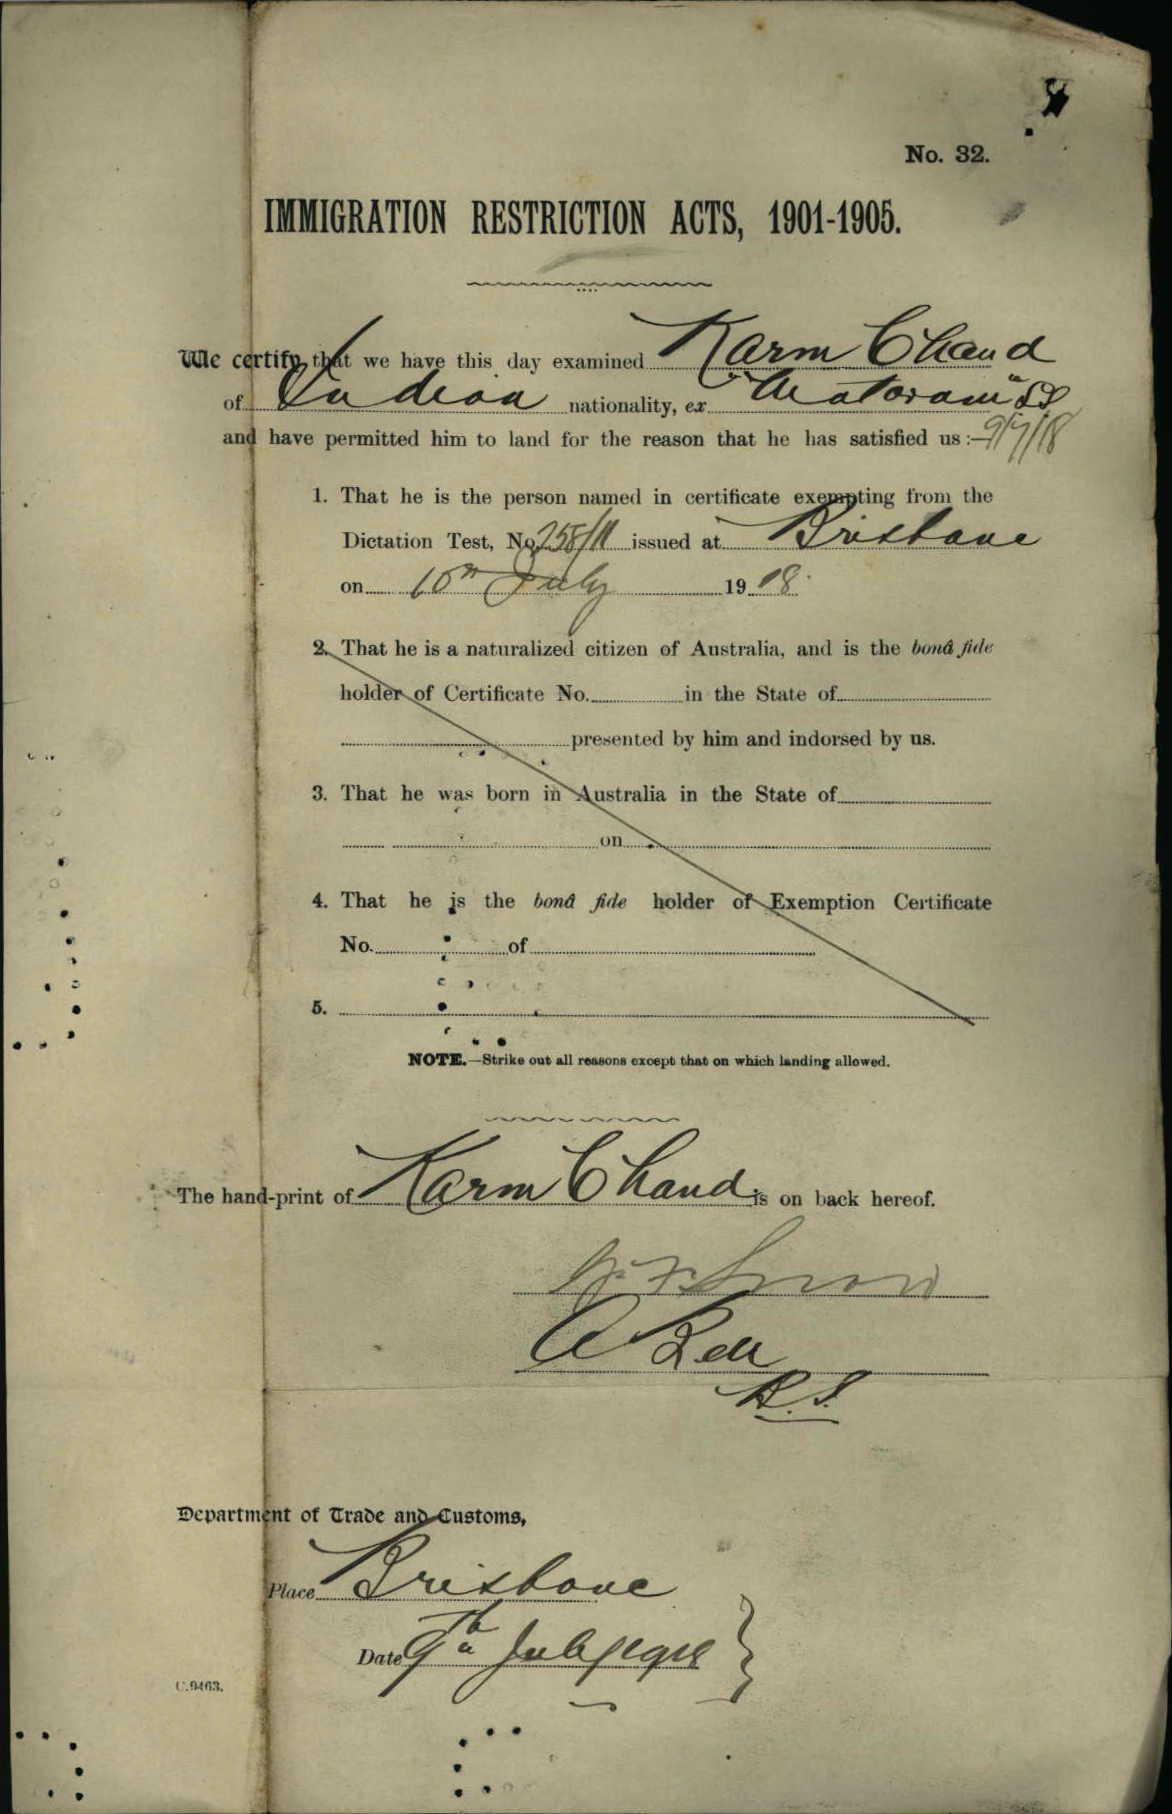 No. 32.
IMMIGRATION RESTRICTION ACTS, 1901-1905.
We certify that we have this day examined Karm Chand
of Indian nationality, ex "Mataram" SS
and have permitted him to land for the reason that he has satisfied us :— 9/7/18
1. That he is the person named in certificate exempting from the
Dictation Test, No. 258/11 issued at Brisbane
on 10th July 1918.
2. That he is a naturalized citizen of Australia, and is the bonâ fide
holder of Certificate No. in the State of
presented by him and indorsed by us.
3. That he was born in Australia in the State of
on
4. That he is the bonâ fide holder of Exemption Certificate
No. of
5.
NOTE.—Strike out all reasons except that on which landing allowed.
The hand-print of Karm Chand is on back hereof.
A Bell
Department of Trade and Customs,
Place Brisbane
Date 9th July 1918
C.9463.